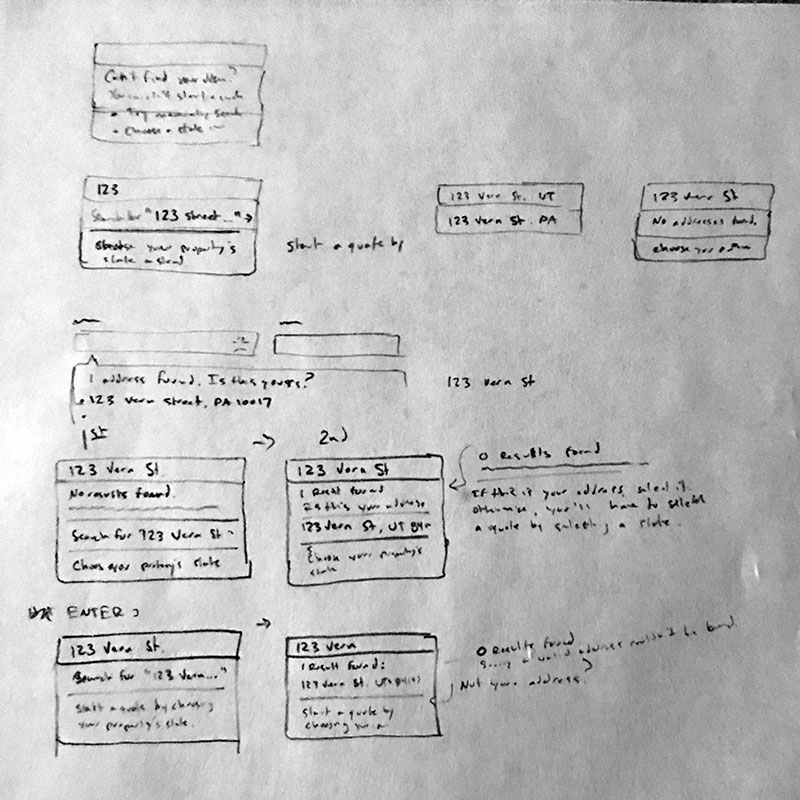 Can't find your
You can still start a
Try
Choose a state
123
Search for "123 street..." →
your property's
state
Start a quote by
123 Vern St. UT
123 Vern St. PA
123 Vern St
No addresses found.
choose your
1 address found. Is this yours?
123 Vern Street, PA 10017
123 Vern St
1st → 2nd
123 Vern St.
No results found.
Search for "123 Vern St"
Choose your property's state
123 Vern St
1 Result found
Is this your address
123 Vern St, UT
Choose your property's
state
0 Results found
If this is your address, select it
otherwise, you'll have to select
a quote by selecting a state.
ENTER
→
123 Vern St.
Search for "123 Vern..."
Start a quote by choosing
your property's state.
123 Vern
1 Result found:
123 Vern St. UT
Start a quote by
choosing
0 Results found
Sorry a valid address couldn't be found.
Not your address?